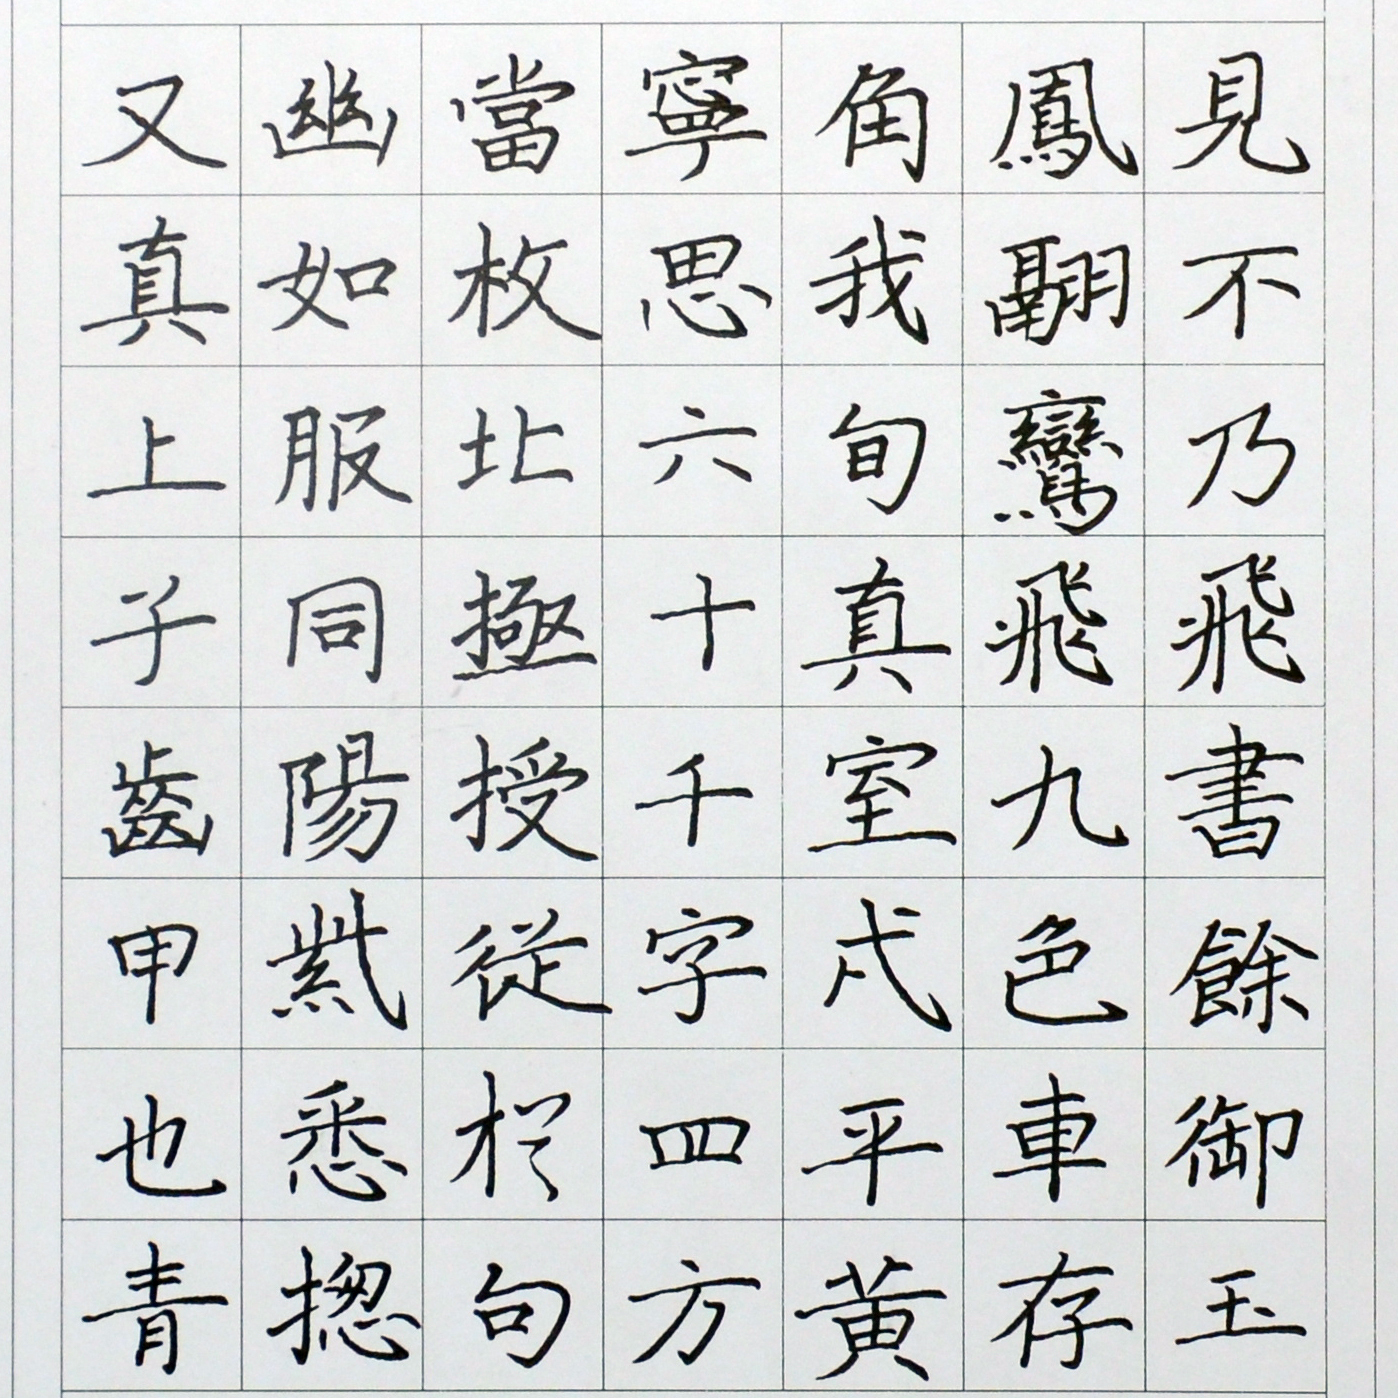 見不乃飛書餘御玉
鳳翮鸞飛九色車存
角我旬真室戍平黄
寧思六十千字四方
當枚北極授從栏句
幽如服同陽歲悉揔
又真上子齒甲也青